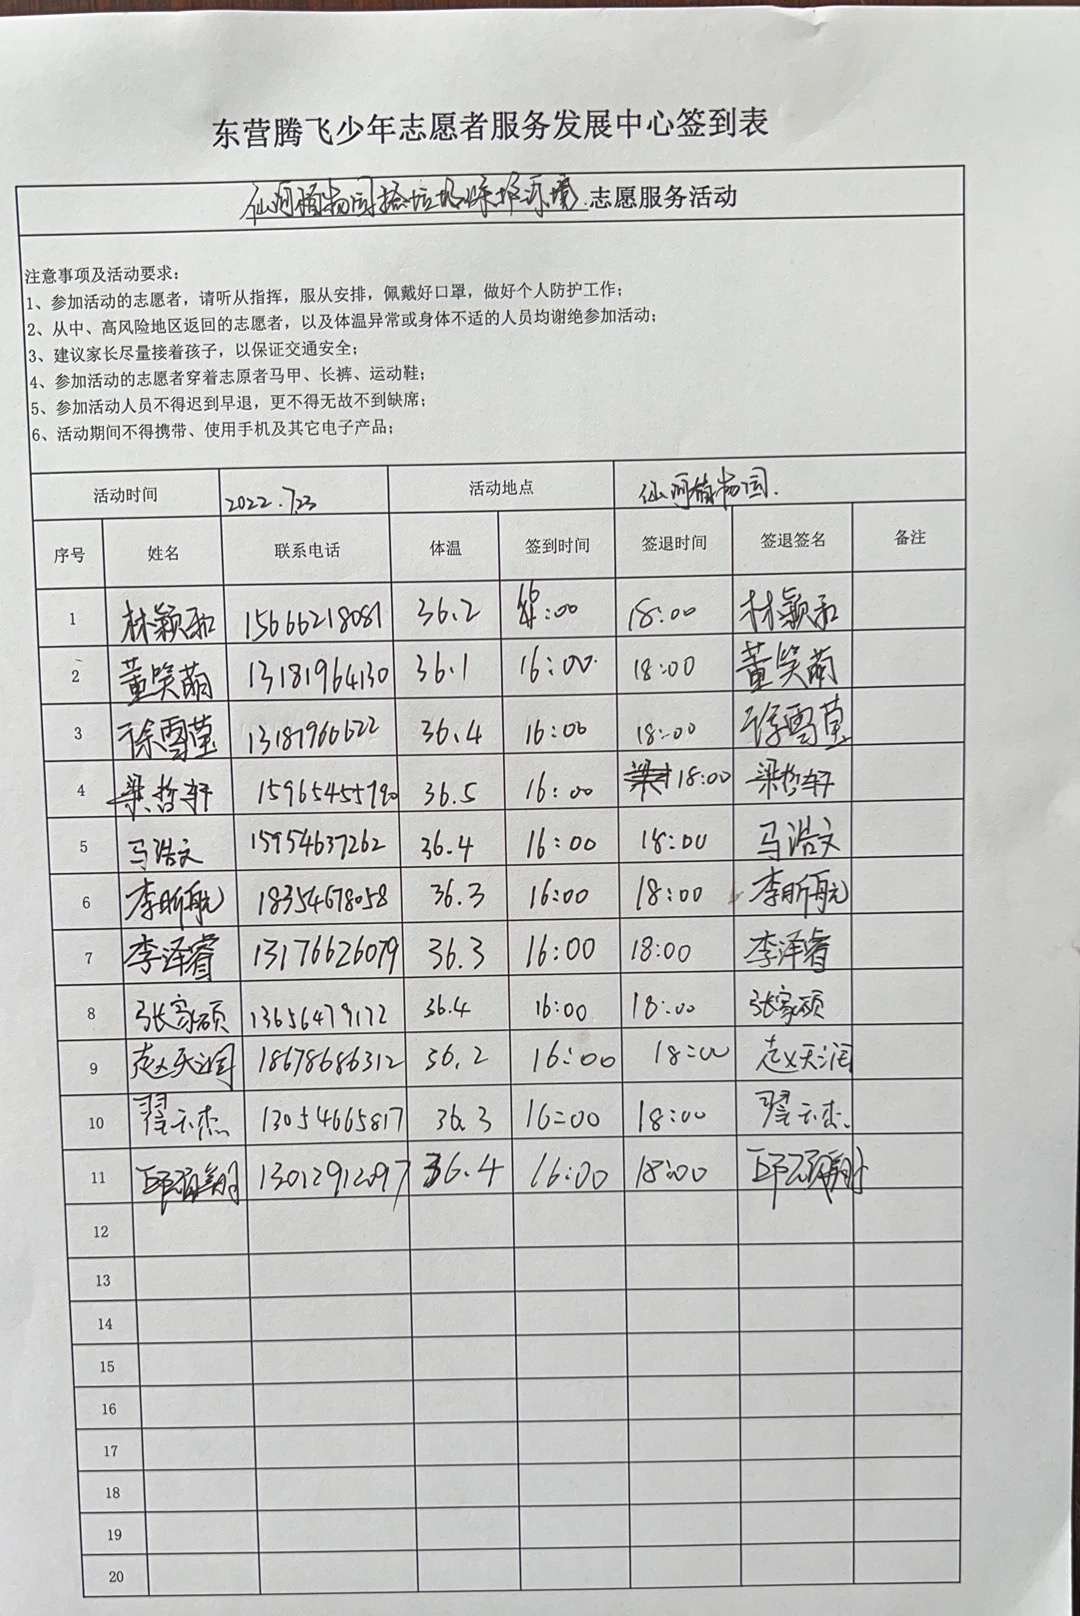 东营腾飞少年志愿者服务发展中心签到表
仙河植物园捡垃圾保护环境 志愿服务活动
注意事项及活动要求：
1、参加活动的志愿者，请听从指挥，服从安排，佩戴好口罩，做好个人防护工作；
2、从中、高风险地区返回的志愿者，以及体温异常或身体不适的人员均谢绝参加活动；
3、建议家长尽量接着孩子，以保证交通安全；
4、参加活动的志愿者穿着志原者马甲、长裤、运动鞋；
5、参加活动人员不得迟到早退，更不得无故不到缺席；
6、活动期间不得携带、使用手机及其它电子产品；
活动时间 2022.7.23 活动地点 仙河植物园.
序号 姓名 联系电话 体温 签到时间 签退时间 签退签名 备注
1 林颖和 15666218081 36.2 16:00 18:00 林颖和
2 董笑萌 13181964130 36.1 16:00 18:00 董笑萌
3 徐雪莹 13181966622 36.4 16:00 18:00 徐雪莹
4 梁哲轩 15965455790 36.5 16:00 18:00 梁哲轩
5 马浩文 15954637262 36.4 16:00 18:00 马浩文
6 李昕航 18354678058 36.3 16:00 18:00 李昕航
7 李泽睿 13176626079 36.3 16:00 18:00 李泽睿
8 张家硕 13656479172 36.4 16:00 18:00 张家硕
9 赵天润 18678686312 36.2 16:00 18:00 赵天润
10 翟云杰 13054665817 36.3 16:00 18:00 翟云杰
11 邱 13012912097 36.4 16:00 18:00 邱
12
13
14
15
16
17
18
19
20